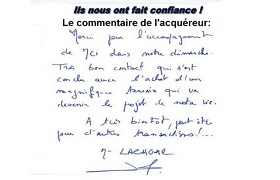 Ils nous ont fait confiance !
Le commentaire de l'acquéreur:
Merci pour l'accompagnement
de Mer dans notre démarche.
Très bon contact qui s'est
conclu avec l'achat d'un
magnifique terrain qui va
devenir le projet de notre vie.
A très bientôt, peut être
pour d'autres transactions !...